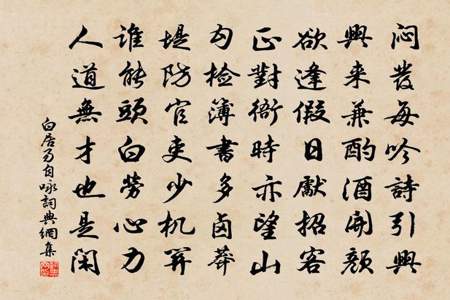 悶發每吟詩引興
興來兼酌酒開顏
欲逢假日獻招客
正對衙時亦望山
勾檢簿書多鹵莽
堤防官吏少机關
誰能頭白勞心力
人道無才也是閑
白居易自咏詞典網集